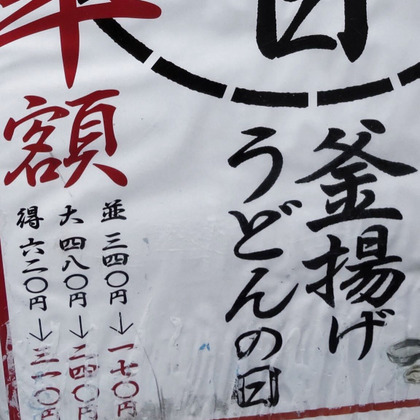 日
釜揚げ
うどんの日
半額
並 三四〇円→一七〇円
大 四八〇円→二四〇円
得 六二〇円→三一〇円